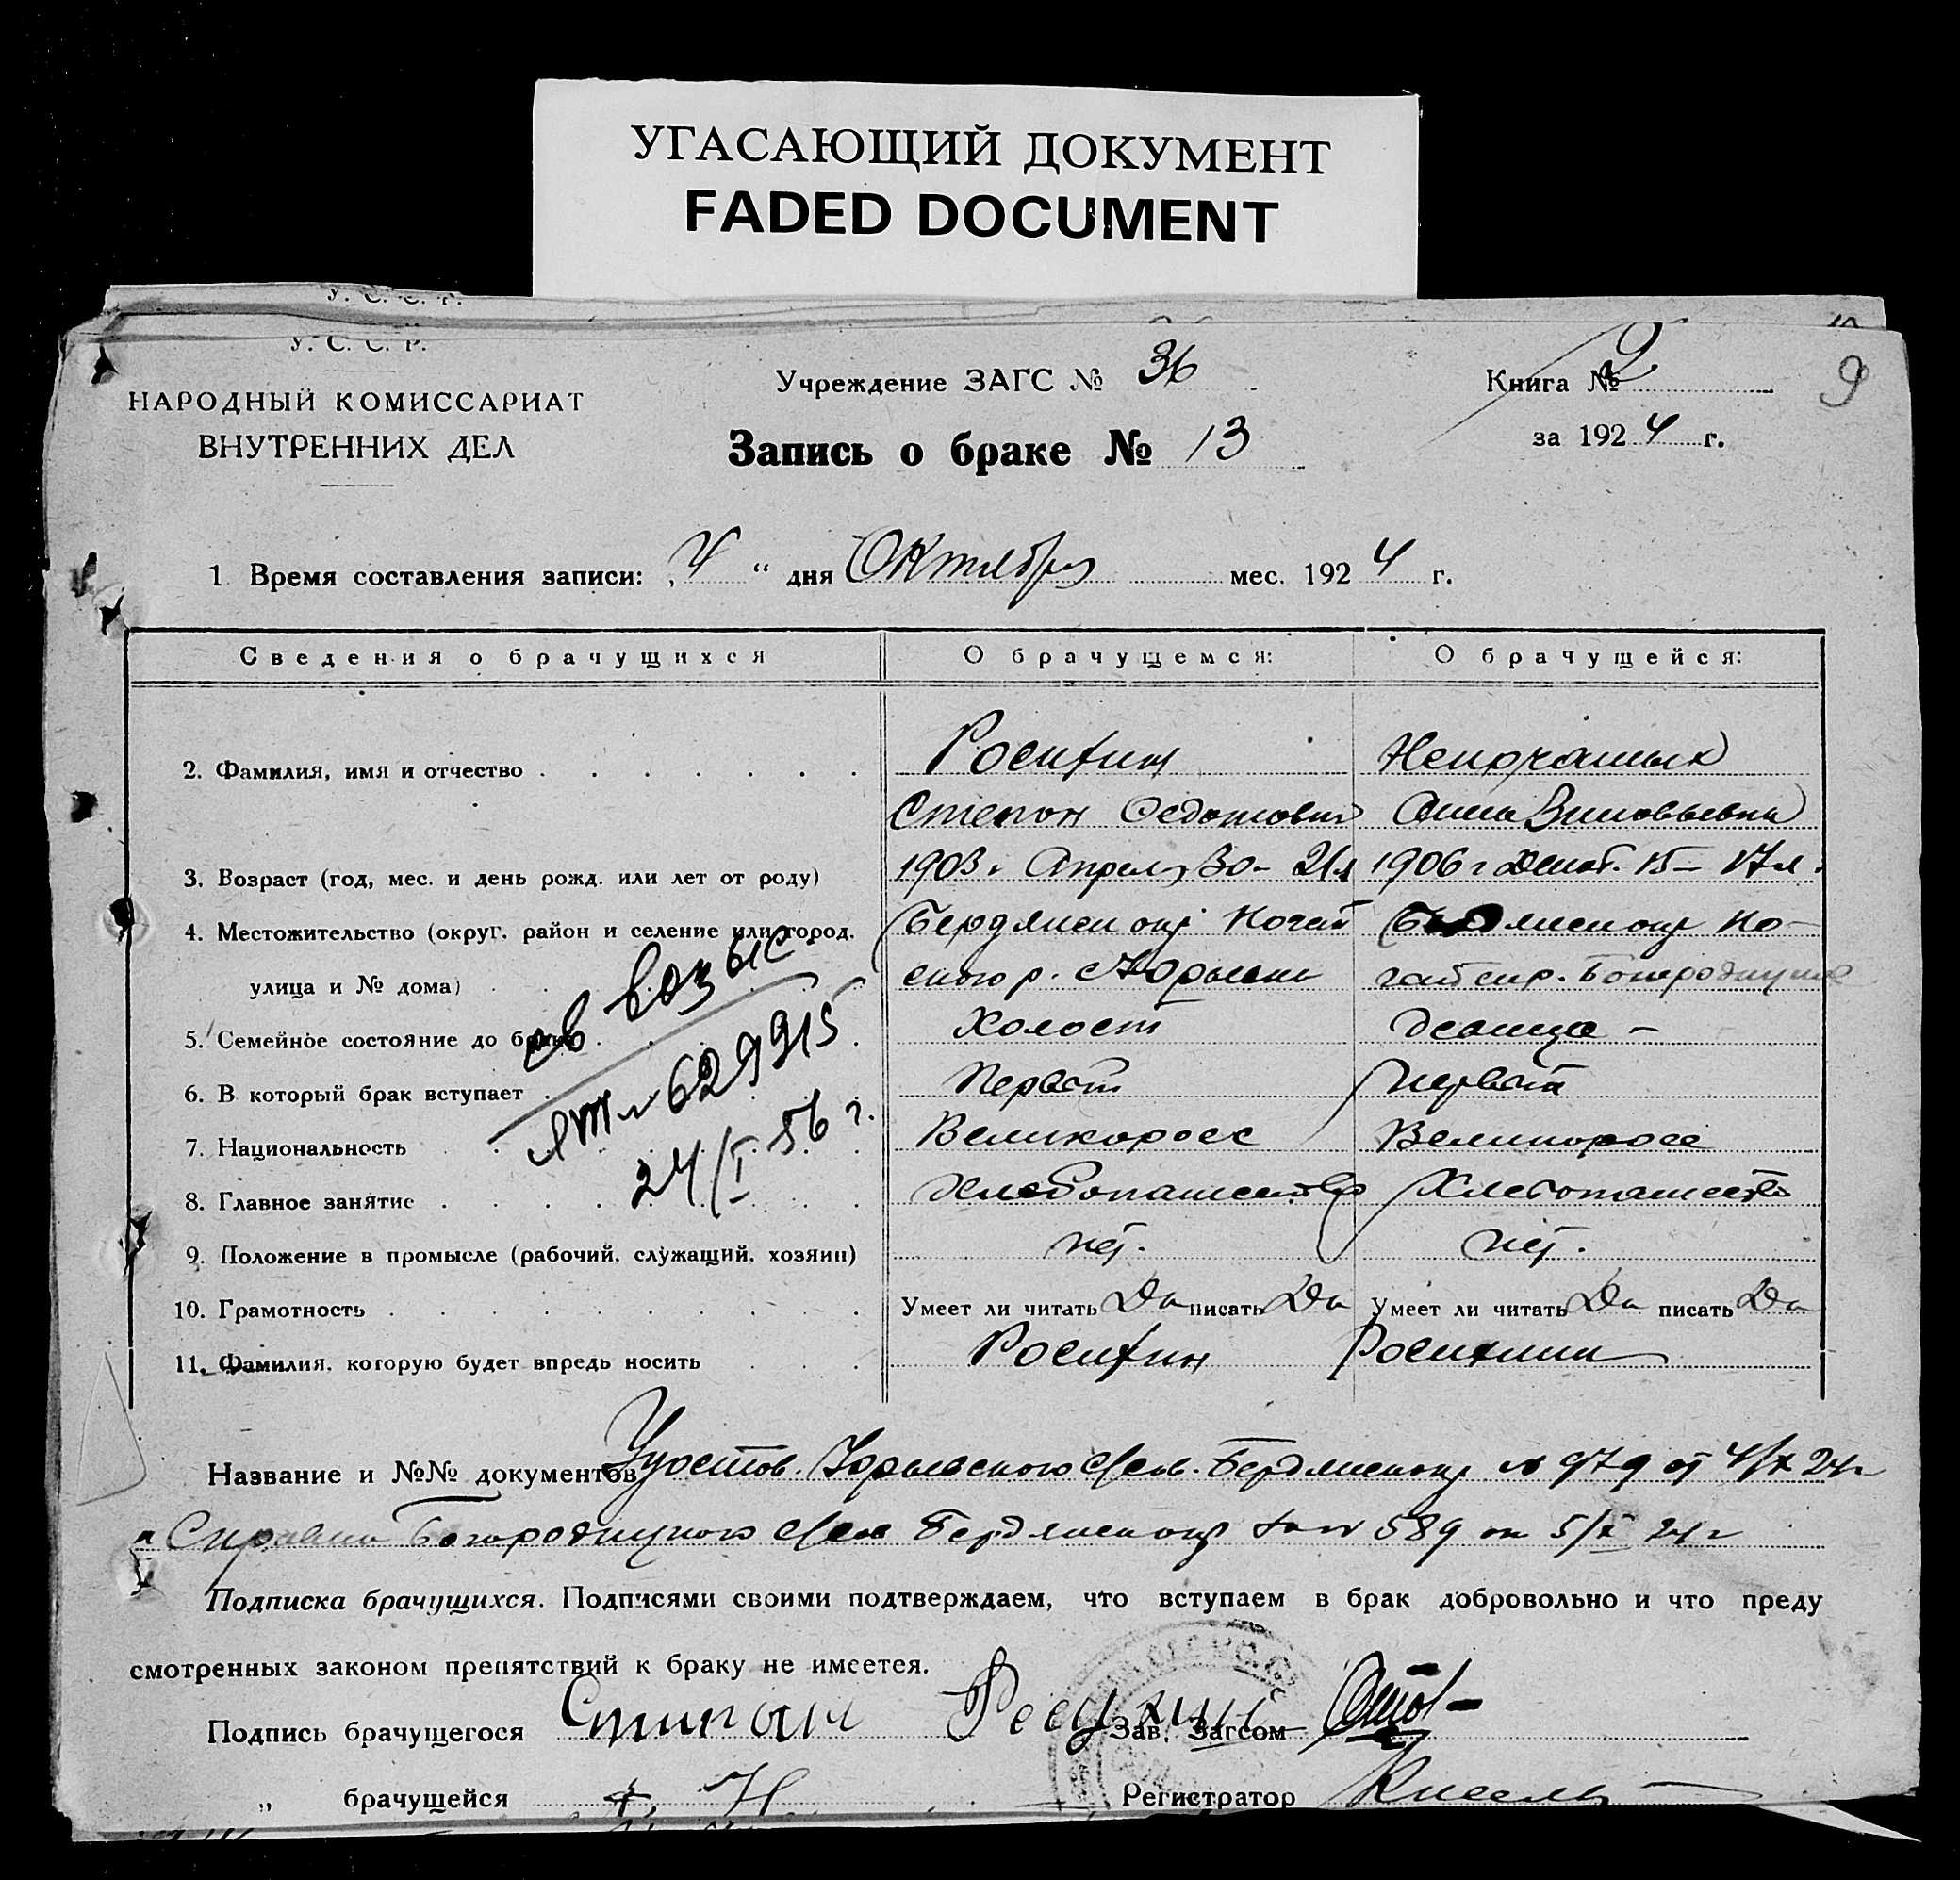 УГАСАЮЩИЙ ДОКУМЕНТ
FADED DOCUMENT
У. С. С. Р.
У. С. С. Р.
НАРОДНЫЙ КОМИССАРИАТ
ВНУТРЕННИХ ДЕЛ
Учреждение ЗАГС № 36
Книга № 2
9
за 1924 г.
Запись о браке № 13
1 Время составления записи: „4“ дня Октября мес. 1924 г.
Сведения о брачущихся О брачущемся: О брачущейся:
2. Фамилия, имя и отчество Росихин
Степан Федотович Анна Зиновьевна
3. Возраст (год, мес. и день рожд. или лет от роду) 1903 г Апреля 30 - 21 л 1906 г Декаб. 15 - 17 л.
4. Местожительство (округ, район и селение или город, Бердянск окр Ногай Бердянск окр Но-
улица и № дома) ского р. с Юрьевки гайск р. Богородицкое
5. Семейное состояние до брака Холост девица -
6. В который брак вступает Первый Первый
7. Национальность Великоросс Великоросс
8. Главное занятие Хлебопашество Хлебопашество
9. Положение в промысле (рабочий, служащий, хозяин) нет. нет.
10. Грамотность Умеет ли читать Да писать Да Умеет ли читать Да писать Да
11. Фамилия, которую будет впредь носить Росихин Росихина
св
№ 629915
24/I 56 г.
Название и №№ документов Удостов. Юрьевского с/сов. Бердянск окр № 979 от 4/X 24 г
и Справка Богородицкого с/сов Бердянск окр за № 589 от 5/X 24 г
Подписка брачущихся. Подписями своими подтверждаем, что вступаем в брак добровольно и что преду
смотренных законом препятствий к браку не имеется.
Подпись брачущегося Стипан Росихин Зав. Загсом
„ брачущейся Регистратор